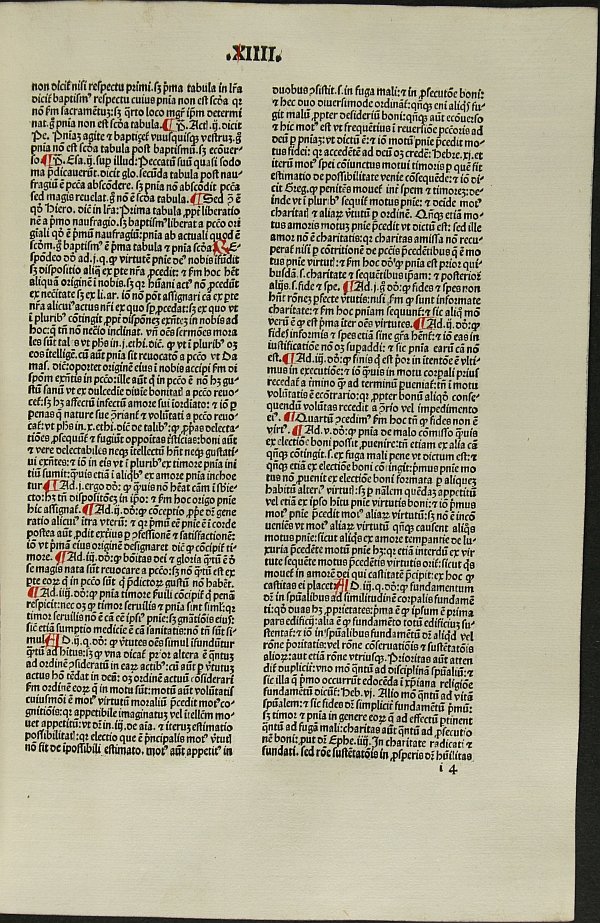 .XIIII.
non dicit nisi respectu primi. sʒ pͥma tabula in lr̄a
dicit baptism⁹ respectu cuius pn̄ia non est scōa qr
no fm sacramētuʒ: sʒ q̄rto loco mgr̄ ip̄m determi
nat. g̊ pn̄ia non est scōa tabula. ¶ P. Act. ij. dicit
Pe. Pn̄iaʒ agite ⁊ baptiʒet̄ vnusquisqʒ vestruʒ. g̊
pn̄ia nō est scōa tabula post baptismū. sʒ ecōuer-
so ¶ P. Esa. iij. sup illud: Peccatū suū quasi sodo
ma p̄dicauerūt. dicit glo. secūda tabula post nau-
fragiū ē pctā abscōdere. sʒ pn̄ia nō abscōdit pctā
sed magis reuelat. g̊ nō ē scōa tabula. ¶ Sed ꝯ̄ ē
qō Hiero. dic̄ in lr̄a: Prima tabula
nē a pͥmo naufragio. sʒ baptism⁹ liberat a pctō ori
giali qō ē pͥmū naufragiū: pn̄ia ab actuali quod ē
scōm. g̊ baptism⁹ ē pͥma tabula ⁊ pn̄ia scōa. Re
spōdeo dō⁊ ad .j. q. ꝙ virtutē pn̄ie de⁹ nobis ifudit
sʒ dispositio aliq̄ ex pte nr̄a p̄cedit: ⁊ fm hoc hēt
aliquā originē i nobis. sʒ qr hūani act⁹ nō p̄cedūt
ex nec̄itate sʒ ex li. ar. io nō pōt assignari cā ex pte
nr̄a alicui⁹ act⁹ nr̄i ex quo sp̄ p̄cedat: sʒ ex quo vt
i plurib⁹ cōtingit, ppt̄ dispōneʒ exn̄teʒ in nobis ad
hoc: q̄ tn̄ nō nec̄io inclinat. vn̄ oēs sermōes mora
les sūt tal s vt phs in .j. ethi. dic̄. ꝙ vt i plurib⁹ oʒ
eos itellige. cū aūt pn̄ia sit reuocatō a pctō vt Da
mas. dic̄: oportet originē eius i nobis accipi fm di
spōm exn̄tis in pctō: ille aūt q̄ in pctō ē nō hʒ gu-
stū sanū vt ex dulcedie diuie bonitat̄ a pctō reuo
cet̄: sʒ hʒ affectū infectū amore sui iordiato: ⁊ iō p
penas q̄ nature sue ꝯ̄rian̄t ⁊ volūtati a pctō reuo-
cat̄: vt phs in .x. ethi. dic̄ de talib⁹: ꝙ ꝓp̄as delecta-
tiōes ꝓsequūt̄ ⁊ fugiūt oppoitas tristicias: boni aūt
⁊ vere delectabiles neqʒ itellectū hn̄t neqʒ gustati-
ui exn̄tes: ⁊ iō in eis vt i plurib⁹ ex timore pn̄ia ini
tiū sumit: q̄uis etiā i aliqb⁹ ex amore pn̄ia inchoe
tur ¶ Ad .j. ergo dō⁊ ꝙ q̄uis nō heat cām i sbie-
cto: hʒ tn̄ dispositōeʒ in ip̄o: ⁊ fm hoc origo pn̄ie
hic assignat̄. ¶ Ad .ij. dō⁊ ꝙ cōceptio ꝓpe dr̄ gene
ratio alicui⁹ itra vterū: ⁊ qr pͥmū eē pn̄ie ē i corde
postea aūt ꝓdit exteri⁹ p ꝯfessionē ⁊ satisfactionē:
iō vt pͥmā eius originē designaret dic̄ ꝙ cōcipit̄ ti-
more. ¶ Ad .iij. dō⁊ ꝙ bōitas dei ⁊ gloria q̄tū ē ð
se magis nata sūt reuocare a pctō: sʒ nō q̄tū est ex
pte eoꝝ q̄ in pctō sūt q̄ p̄dictoꝝ gustū nō habēt.
¶ Ad .iiij. dō⁊ ꝙ pn̄ia timore fuili cōcipit̄ q̄ penā
respicit: nec oʒ ꝙ timor seruilis ⁊ pn̄ia sint siml̄: qr
timor seruilis nō ē cā eē ipsi⁹ pn̄ie: sʒ gn̄atiōis eius:
sic̄ etiā sumptio medicie ē cā sanitatis: nō tn̄ sūt si-
mul. A D .ij. q. dō⁊ ꝙ v̄tutes oēs simul ifundūtur
q̄tū ad hitus: sʒ ꝙ vna dicat̄ pr̄or altera ē q̄ntuʒ
ad ordinē ꝯsideratū in eaꝝ actib⁹: cū aūt p v̄tutū
actus hō tēdat in deū: oʒ ordinē actuū cōsiderari
fm ordinē eoꝝ q̄ in motu sūt: motū aūt volūtatis
cuiusmōi ē mot⁹ virtutū moraliū p̄cedit mot⁹ co-
gnitiōis: qr appetibile imaginatū vel itellēm mo-
uet appetitū: vt dr̄ in .iij. de aīa. ⁊ iteruʒ estimatio
possibilitat̄: qr electio que ē pn̄cipalis mot⁹ v̄tutū
nō sit de ipossibili estimato. mot⁹ aūt appetit⁹ in
duobus ꝯsistit. s. in fuga mali: ⁊ in ꝓsecutōe boni:
⁊ hec duo diuersimode ordinant̄: qn̄qʒ eni aliqs fu-
git malū ꝓpter desideriū boni: qn̄qʒ aūt ecōuerso:
⁊ hic mot⁹ est vt freq̄utius i reuersiōe pctōris ad
deū p pn̄iaʒ: vt dictū ē: ⁊ iō motū pn̄ie p̄cedit mo-
tus fidei: qr accedētē ad deū oʒ crede: Hebre. xj. et
iteꝝ mot⁹ spei cōiunctus motui timoris p que sit
estimatio de possibilitate venie cōsequēde: ⁊ iō di
cit Greg. ꝙ penitēs mouet̄ inē spem ⁊ timoreʒ: de-
inde vt i plurib⁹ sequit̄ motus pn̄ie: ⁊ deide mot⁹
charitat̄ ⁊ aliaꝝ v̄tutū p ordinē. Qn̄qʒ etiā mo-
tus amoris motuʒ pn̄ie p̄cedit vt dictū est: sed ille
amor nō ē charitatis: qr charitas amissa nō recu-
perat̄ nisi p cōtritionē de pctis q̄equidē ē mot⁹ pn̄i-
tie virtut̄: ⁊ fm hoc dō⁊ ꝙ pn̄ia est prior qui
busdā. s. charitate ⁊ sequētibus ip̄am: ⁊ posterior
alijs. s. fide ⁊ spe. ¶ Ad .j. g̊ dō⁊ ꝙ fides ⁊ spes non
hn̄t rōneʒ pfecte v̄tutis: nisi fm ꝙ sunt informate
charitate: ⁊ fm hoc pn̄iam sequunt̄: ⁊ sic aliq̄ mō
verū ē ꝙ est pͥma iter oēs virtutes. ¶ Ad .ij. dō⁊ ꝙ
fides informis ⁊ spes etiā sine gr̄a hēnt̄: ⁊ iō eas in
iustificatiōe nō oʒ supaddi: ⁊ sic pn̄ia eaꝝ cā nō
est. ¶ Ad .iij. dō⁊ ꝙ finis q̄ est pͥor in itentōe ē vlti-
mus in executiōe: ⁊ iō q̄uis in motu corꝑali prius
recedat a t̄mino q̄ ad terminū pueniat̄: tn̄ i motu
volūtatis ē ecōtrario: qr ꝓpter bonū aliqō conse-
quendū voluntas recedit a ꝯ̄rio vel impedimento
ei⁹. ¶ Quartū ꝯcedim⁹ fm hoc tn̄ ꝙ fides non ē
virt⁹. ¶ Ad .v. dō⁊ ꝙ pn̄ia de malo cōmisso q̄uis
ex electiōe boni possit ꝓuenire: tn̄ etiam ex alia cā
qn̄qʒ cōtingit. s. ex fuga mali pene vt dictum est: ⁊
qn̄qʒ etiā ex electiōe boni cōtingit: pͥmus pn̄ie mo
tus nō ꝓuenit ex electiōe boni formata p aliqueʒ
habitū alteri⁹ virtut̄: sʒ p nālem quēdaʒ appetitū
vel etiā ex ipso hitu pn̄ie virtutis boni: ⁊ iō pͥmus
mot⁹ pn̄ie p̄cedit mot⁹ aliaꝝ virtutū: sʒ nō ē incō
ueniēs vt mot⁹ aliaꝝ virtutū qn̄qʒ causent̄ aliqs
motus pn̄ie: sicut aliqs ex amore tempantie de lu-
xuria p̄cedēte motū pn̄ie hʒ: qr etiā interdū ex vir
tute sequēte motus p̄cedētis virtutis orit̄: sicut qs
mouet̄ in amorē dei qui castitatē p̄cipit: ex hoc ꝙ
castitas ei placet. A D .iij. q. dō⁊ ꝙ fundamentum
dr̄ in spūalibus ad similitudinē corpalis fundamē
ti: qō duas hʒ ꝓprietates: pͥma ē ꝙ ipsum ē prima
pars edificij: alia ē ꝙ fundamēto totū edificiuʒ su-
stentat̄: ⁊ iō in spūalibus fundamētū dr̄ aliqd vel
rōne p̄oritatis: vel rōne cōseruatiōis ⁊ sustētatōis
alioꝝ: aut etiā rōne vtriusqʒ. Prioritas aūt atten
dit̄ dupliciť: vno mō q̄ntū ad disciplinā spūalē: ⁊
sic illa q̄ pͥmo occurrūt edocēda i xpiana religiōe
fundamētū dicūt̄: Heb. vj. Alio mō q̄ntū ad vitā
spūalem: ⁊ sic fides dr̄ simplicit̄ fundamētū pͥmuʒ:
sʒ timor ⁊ pn̄ia in genere eoꝝ q̄ ad effectū ꝑtinent
q̄ntū ad fugā mali: charitas aūt q̄ntū ad ꝓsecutio
nē boni: put dr̄ Ephe. iij. In charitate radicati ⁊
fundati. sed rōe sustētatōis in ꝓsperis dr̄ hūilitas
i 4